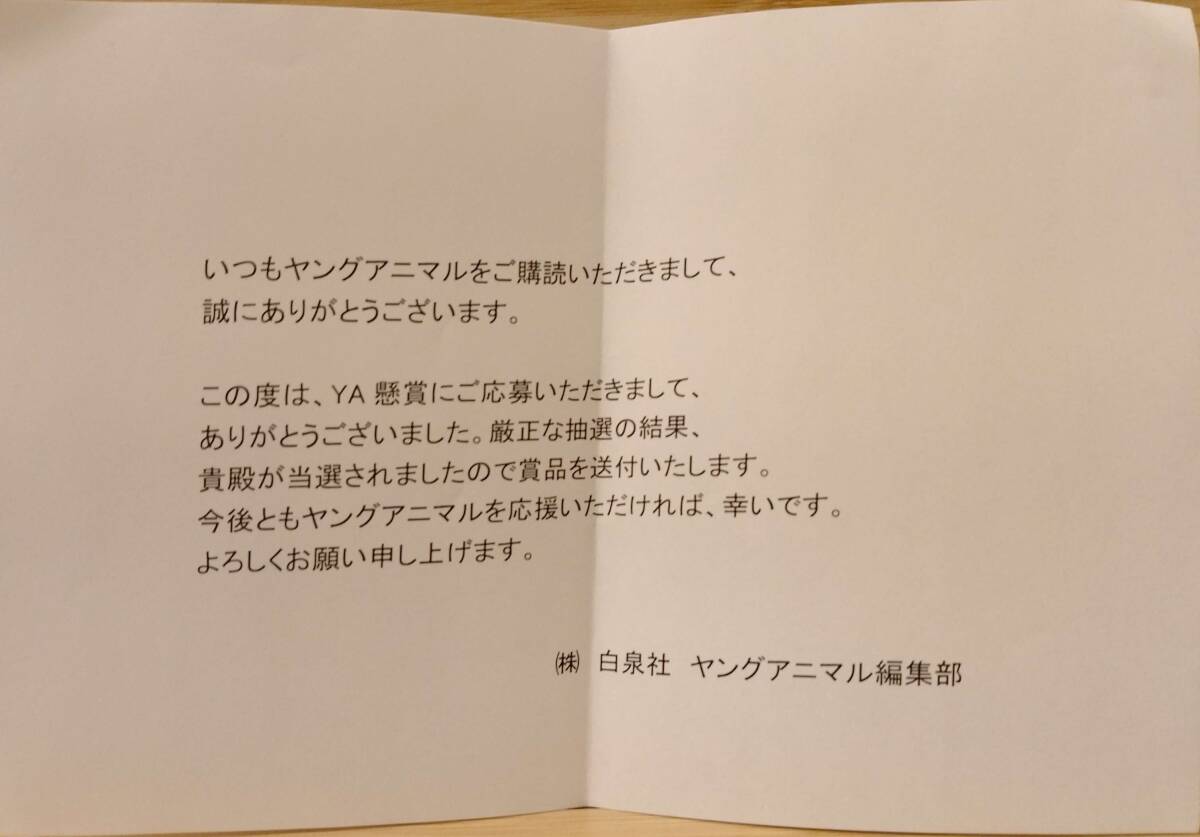 いつもヤングアニマルをご購読いただきまして、
誠にありがとうございます。
この度は、YA 懸賞にご応募いただきまして、
ありがとうございました。厳正な抽選の結果、
貴殿が当選されましたので賞品を送付いたします。
今後ともヤングアニマルを応援いただければ、幸いです。
よろしくお願い申し上げます。
㈱ 白泉社 ヤングアニマル編集部